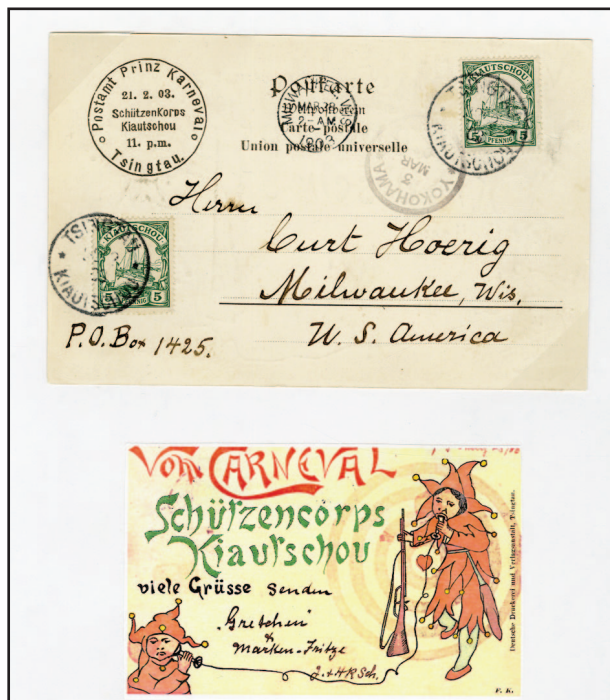 Postamt Prinz Karneval
21. 2. 03.
SchützenKorps
Kiautschou
11. p.m.
Tsingtau.
Postkarte
Weltpostverein
Carte postale
Union postale universelle
MILWAUKEE, WIS.
MAR 28
2-AM
1903
YOKOHAMA
3
MAR
KIAUTSCHOU
5 PFENNIG 5
TSINGTAU
KIAUTSCHOU
TSINGTAU
KIAUTSCHOU
KIAUTSCHOU
5 5
Herrn
Curt Hoerig
Milwaukee, Wis.
U. S. America
P.O. Box 1425.
Vom CARNEVAL
Schützencorps
Kiautschou
viele Grüsse senden
"Gretchen"
&
Marken-Fritze
Deutsche Druckerei und Verlagsanstalt, Tsingtau.
F. K.